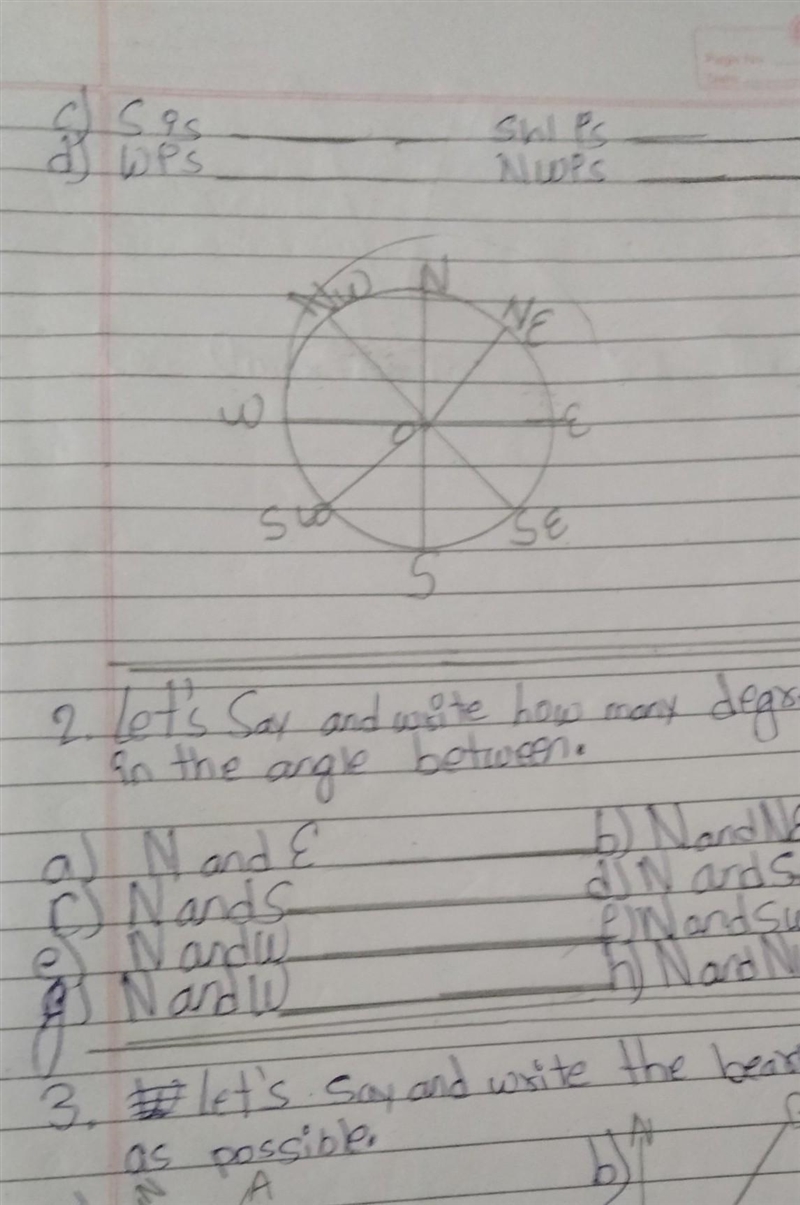 c) S is SW is
d) W is NW is
NW N NE
W O E
SW SE
S
2. Let's Say and write how many degr
in the angle between.
a) N and E b) N and NE
c) N and S d) N and S
e) N and W f) N and SW
g) N and W h) N and NW
3. Let's Say and write the bear
as possible.
N A b) N